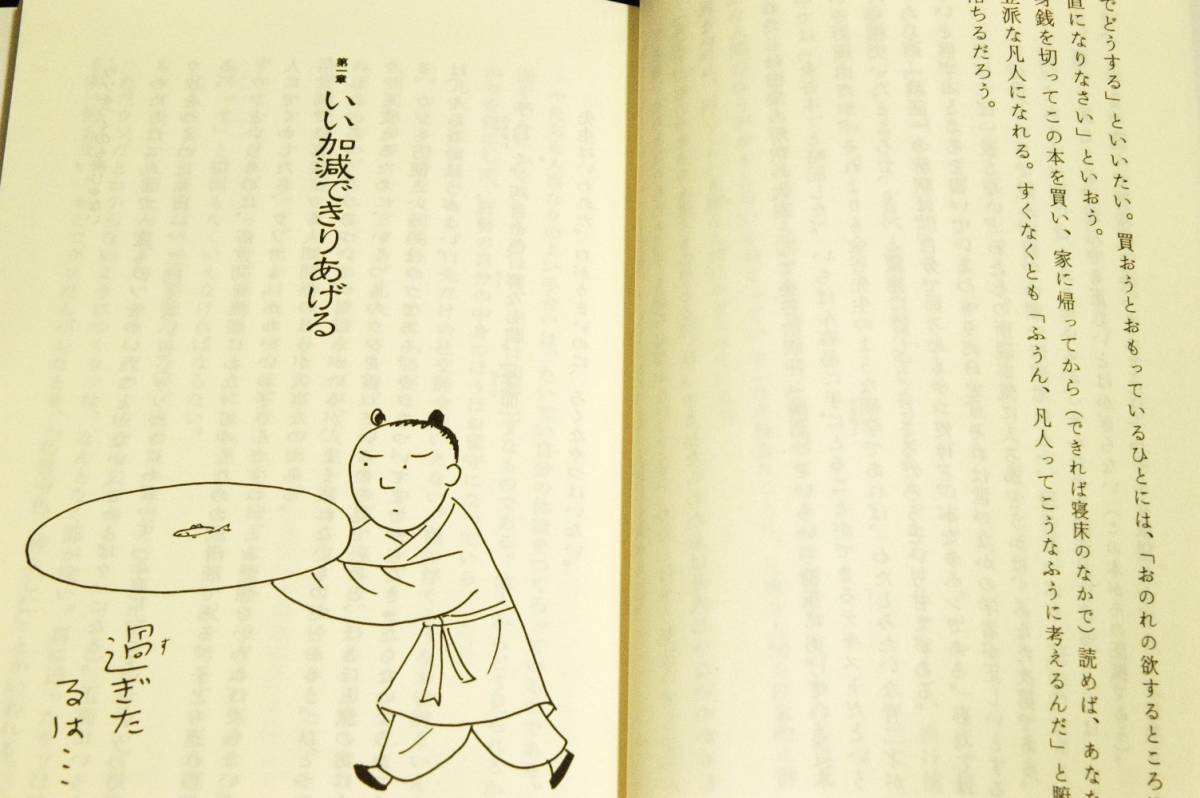 でどうする」といいたい。買おうとおもっているひとには、「おのれの欲するところ
直になりなさい」といおう。
身銭を切ってこの本を買い、家に帰ってから（できれば寝床のなかで）読めば、あなた
立派な凡人になれる。すくなくとも「ふうん、凡人ってこうなふうに考えるんだ」と腑
落ちるだろう。
第一章
いい加減できりあげる
過ぎた
す
るは…